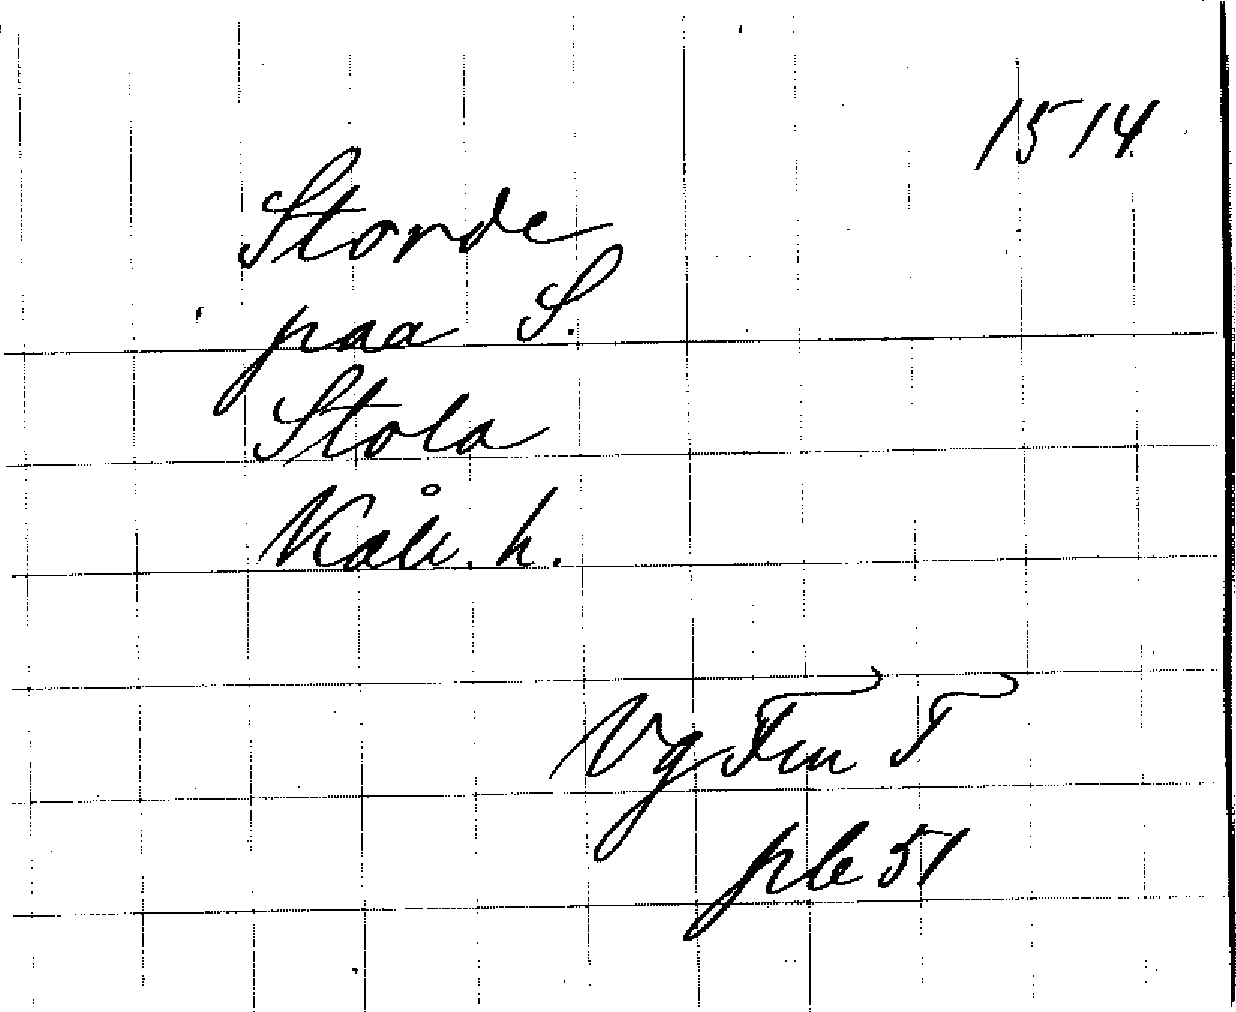 1514
Storde
paa S.
Stola
Kåll. h.
Vg Fm T
ple 51